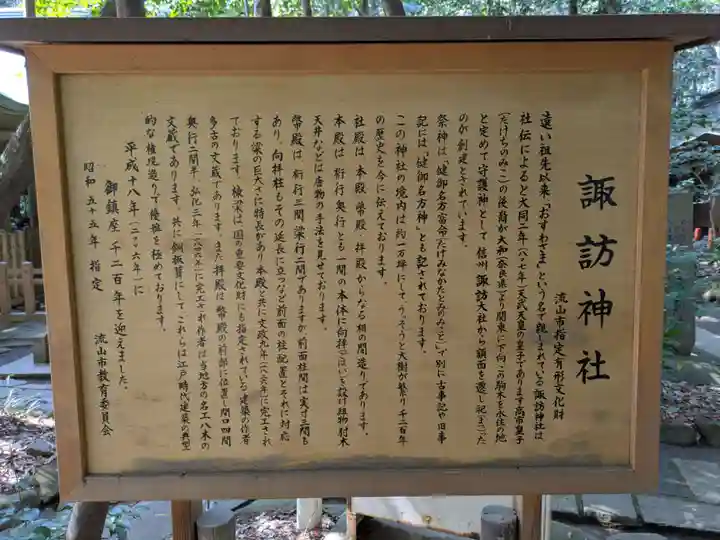 諏訪神社
流山市指定有形文化財
遠い祖先以来、「おすわさま」という名で親しまれている諏訪神社は
社伝によると大同二年(八〇七年)天武天皇の皇子であります高市皇子
(たけちのみこ)の後裔が大和(奈良県)より関東に下向、この駒木を永住の地
と定めて守護神として、信州 諏訪大社から額面を遷し祀まつった
のが創建とされています。
祭神は「健御名方富命(たけみなかたとみのみこと)」で別に古事記や旧事
記には「健御名方神」とも記されております。
この神社の境内は約一万坪にして、うっそうと大樹が繁り千二百年
の歴史を今に伝えております。
社殿は、本殿 幣殿 拝殿からなる相の間造りであります。
本殿は、桁行 奥行とも一間の本体に向拝(ごはい)を設け組物肘木
天井などは唐物の手法を見せております。
幣殿は、桁行三間 梁行二間でありますが、前面柱間は実寸三間も
あり、向拝柱もその延長に立つなど前面の柱配置とそれに対応
する梁の巨大さに特長があり本殿と共に文政九年(一八二六年)に完工され
ております。棟梁は、国の重要文化財にも指定されている建築の作者
多古の文蔵であります。また拝殿は幣殿の前部に位置し間口四間
奥行二間半、弘化三年(一八四六年)に完工され作者は当地方の名工八木の
文蔵であります。共に銅板葺にしてこれらは江戸時代建築の典型
的な権現造りで優雅を極めております。
平成十八年(二〇〇六年)に
御鎮座 千二百年を迎えました。
昭和五十五年 指定
流山市教育委員会